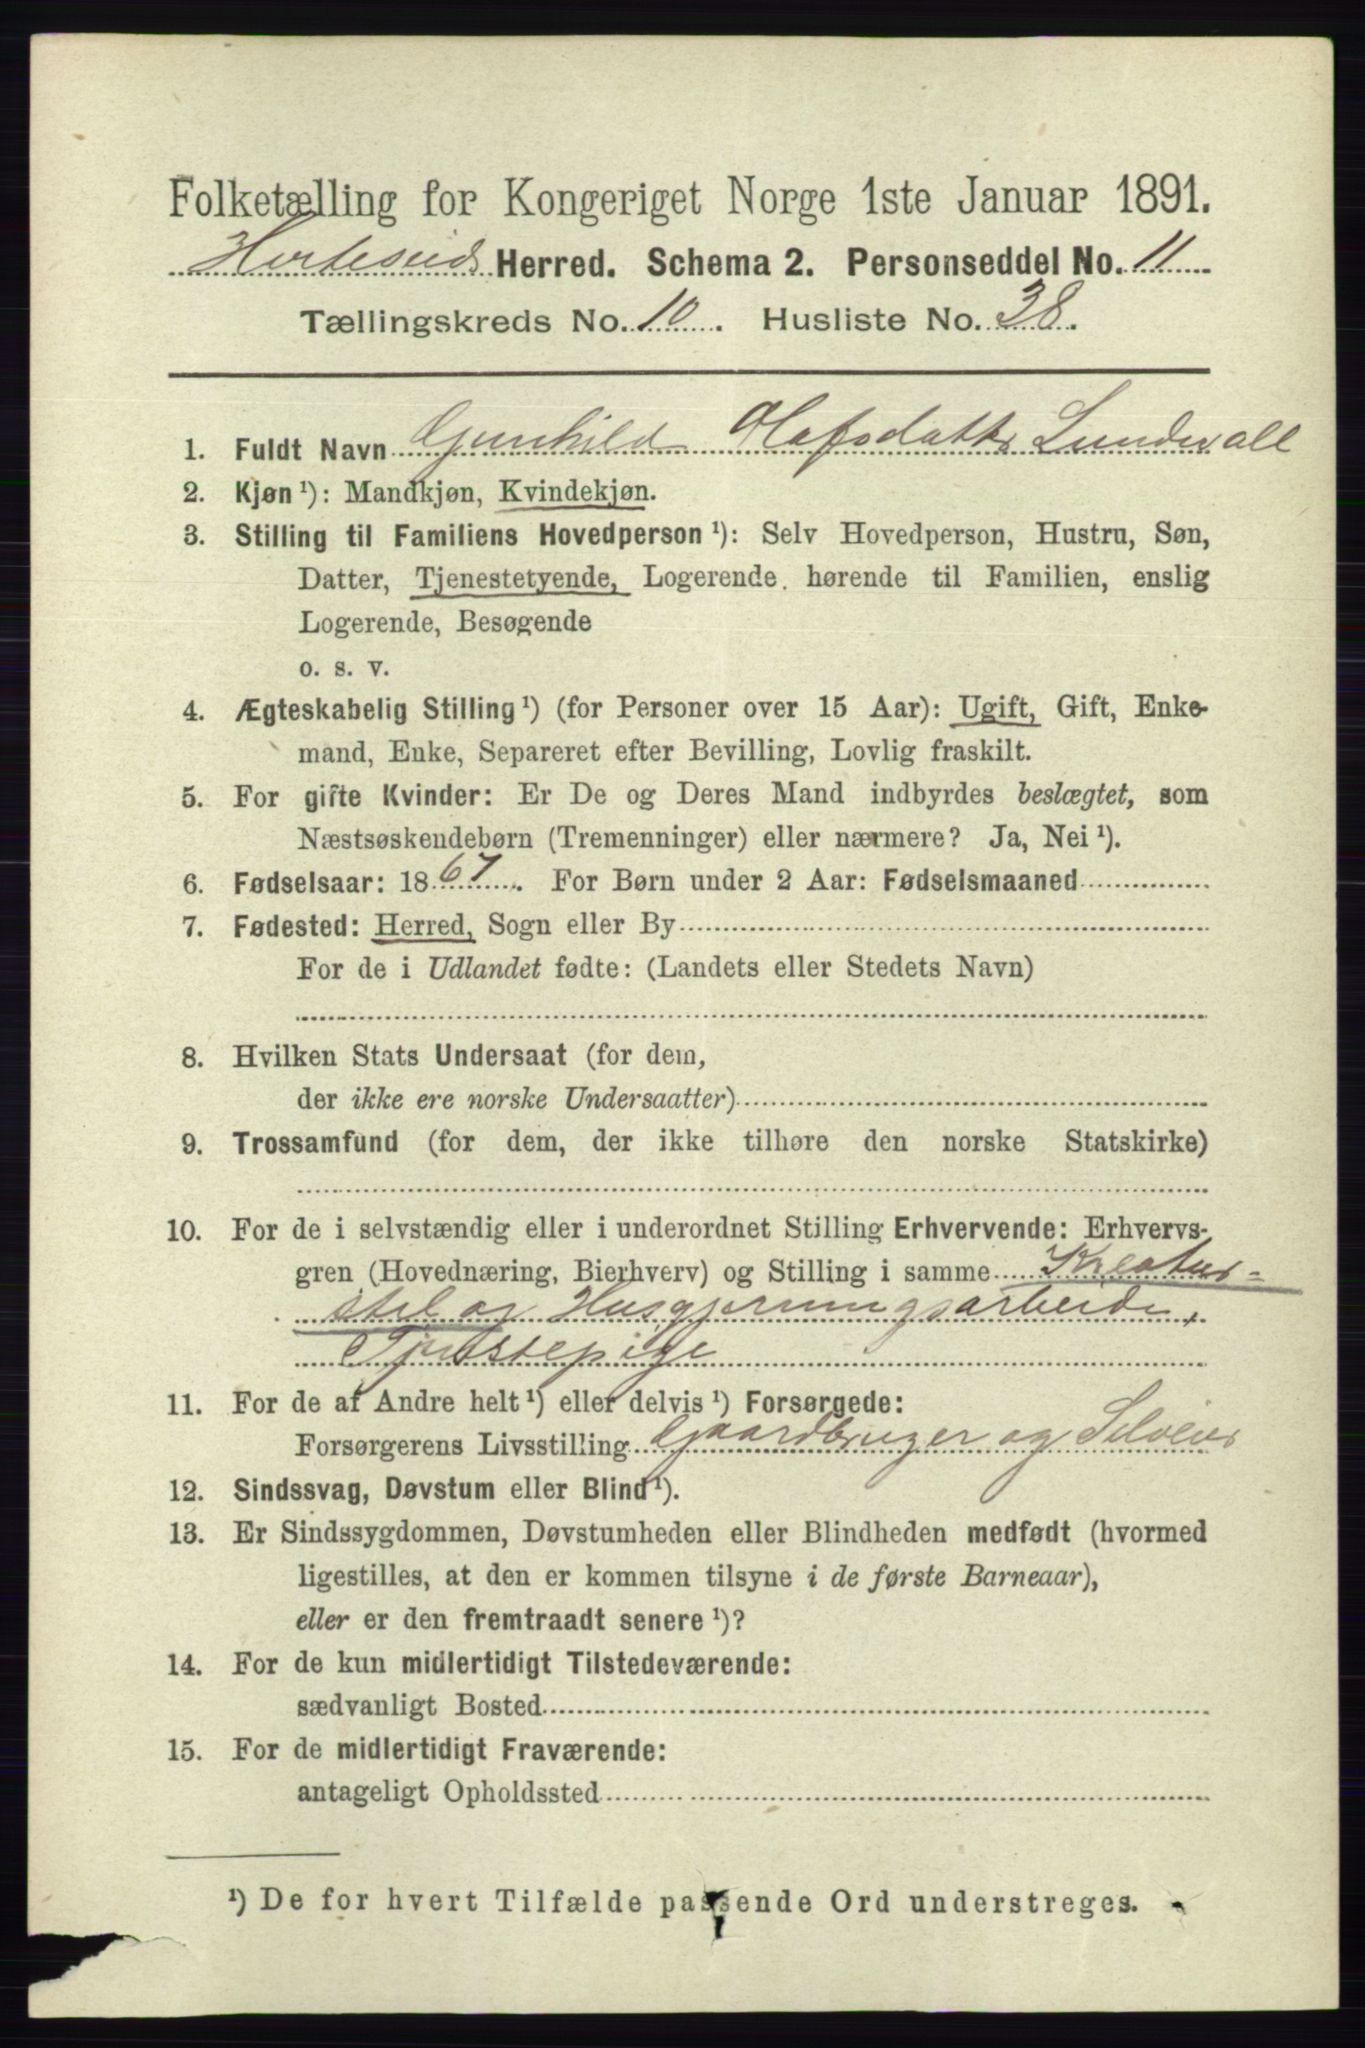 Folketælling for Kongeriget Norge 1ste Januar 1891.
Hviteseid Herred. Schema 2. Personseddel No. 11
Tællingskreds No. 10. Husliste No. 38.
1. Fuldt Navn Gunhild Olafsdatter Lundevall
2. Kjøn ¹): Mandkjøn, Kvindekjøn.
3. Stilling til Familiens Hovedperson ¹): Selv Hovedperson, Hustru, Søn,
Datter, Tjenestetyende, Logerende hørende til Familien, enslig
Logerende, Besøgende
o. s. v.
4. Ægteskabelig Stilling ¹) (for Personer over 15 Aar): Ugift, Gift, Enke-
mand, Enke, Separeret efter Bevilling, Lovlig fraskilt.
5. For gifte Kvinder: Er De og Deres Mand indbyrdes beslægtet, som
Næstsøskendebørn (Tremenninger) eller nærmere? Ja, Nei ¹).
6. Fødselsaar: 1867. For Børn under 2 Aar: Fødselsmaaned
7. Fødested: Herred, Sogn eller By
For de i Udlandet fødte: (Landets eller Stedets Navn)
8. Hvilken Stats Undersaat (for dem,
der ikke ere norske Undersaatter)
9. Trossamfund (for dem, der ikke tilhøre den norske Statskirke)
10. For de i selvstændig eller i underordnet Stilling Erhvervende: Erhvervs-
gren (Hovednæring, Bierhverv) og Stilling i samme Kreatur-
stel og Husgjerningsarbeide,
Tjenstepige
11. For de af Andre helt ¹) eller delvis ¹) Forsørgede:
Forsørgerens Livsstilling Gaardbruger og Selveier
12. Sindssvag, Døvstum eller Blind ¹).
13. Er Sindssygdommen, Døvstumheden eller Blindheden medfødt (hvormed
ligestilles, at den er kommen tilsyne i de første Barneaar),
eller er den fremtraadt senere ¹)?
14. For de kun midlertidigt Tilstedeværende:
sædvanligt Bosted
15. For de midlertidigt Fraværende:
antageligt Opholdssted
¹) De for hvert Tilfælde passende Ord understreges.